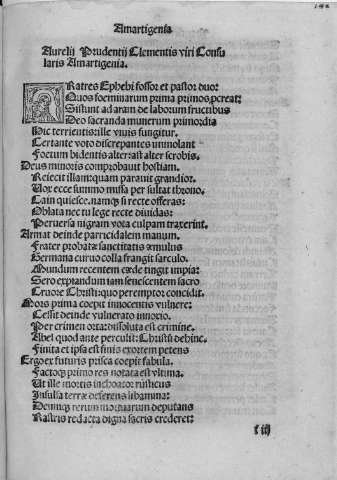 Amartigenia
Aurelij Prudentij Clementis viri Consu
laris Amartigenia.
FRatres Ephebi fossor et pastor duo:
Quos foeminarum prima primos pcreat:
Sistunt ad aram de laborum fructibus
Deo sacranda munerum primordia
Hic terrientis: ille viuis fungitur.
Certante voto discrepantes immolant
Foetum bidentis alter: ast alter scrobis.
Deus minoris comprobauit hostiam.
Reiecit illam: quam parauit grandior.
Uox ecce summo missa per sultat throno.
Cain quiesce. namq; si recte offeras:
Oblata nec tu lege recte diuidas:
Peruersa nigram vota culpam traxerint.
Armat deinde parricidalem manum.
Frater probatæ sanctitatis æmulus
Germana curuo colla frangit sarculo.
Mundum recentem cæde tingit impia:
Sero expiandum iam senescentem sacro
Cruore Christi: quo peremptor concidit.
Mors prima coepit innocentis vulnere:
Cessit deinde vulnerato innoxio.
Per crimen orta: dissoluta est crimine.
Abel quod ante perculit: Christũ dehinc.
Finita et ipsa est finis exortem petens
Ergo et futuris prisca coepit fabula.
Factoq; primo res notata est vltima.
Ut ille mortis inchoator rusticus
Insulsa terræ deferens libamina:
Demuq; rerum mortuarum deputans
Rastris redacta digna sacris crederet: